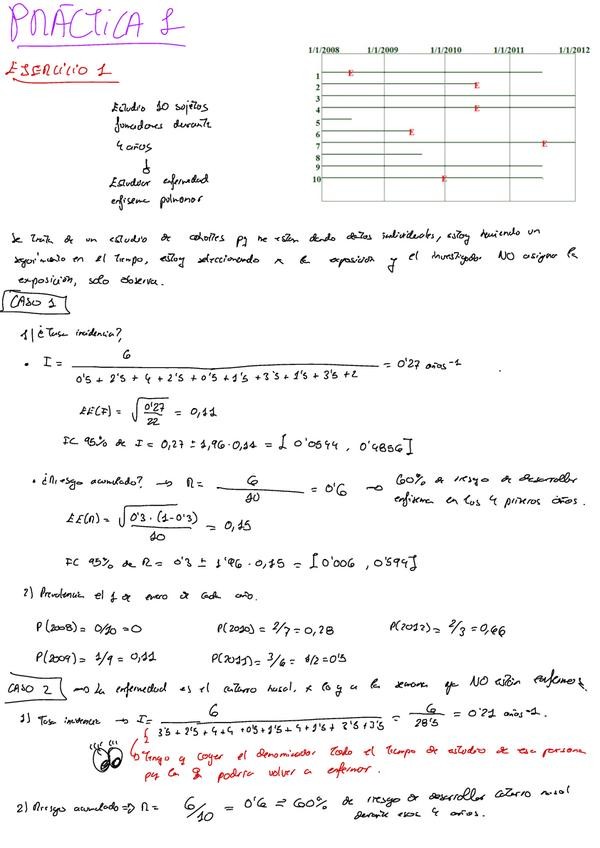 PRÁCTICA 1
EJERCICIO 1
1/1/2008 1/1/2009 1/1/2010 1/1/2011 1/1/2012
1 E
2 E
3
4 E
5
6 E
7 E
8
9
10 E
Estudio 10 sujetos
fumadores durante
4 años
Estudiar enfermedad
enfisema pulmonar
Se trata de un estudio de cohortes pq me están dando datos individuales, estoy haciendo un
seguimiento en el tiempo, estoy seleccionando x la exposición y el investigador NO asigna la
exposición, solo observa.
CASO 1
1) ¿Tasa incidencia?
• I = 6 / 0'5 + 2'5 + 4 + 2'5 + 0'5 + 1'5 + 3'5 + 1'5 + 3'5 + 2 = 0'27 años-1
EE(I) = √0'27/22 = 0,11
IC 95% de I = 0,27 ± 1,96 · 0,11 = [0'0544, 0'4856]
• ¿Riesgo acumulado? → R = 6/10 = 0'6 → 60% de riesgo de desarrollar
enfisema en los 4 primeros años.
EE(R) = √0'3 · (1-0'3)/10 = 0,15
IC 95% de R = 0'3 ± 1'96 · 0,15 = [0'006, 0'594]
2) Prevalencia el 1 de enero de cada año.
P(2008) = 0/10 = 0 P(2010) = 2/7 = 0,28 P(2012) = 2/3 = 0,66
P(2009) = 1/9 = 0,11 P(2011) = 3/6 = 1/2 = 0'5
CASO 2 → La enfermedad es el catarro nasal, x lo q a la semana ya NO están enfermos.
1) Tasa incidencia → I = 6 / 3'5 + 2'5 + 4 + 4 + 0'5 + 1'5 + 4 + 1'5 + 3'5 + 3'5 = 6/28'5 = 0'21 años-1.
Tengo q coger el denominador todo el tiempo de estudio de esa persona
pq la podría volver a enfermar.
2) Riesgo acumulado ⇒ R = 6/10 = 0'6 ⇒ 60% de riesgo de desarrollar catarro nasal
durante esos 4 años.